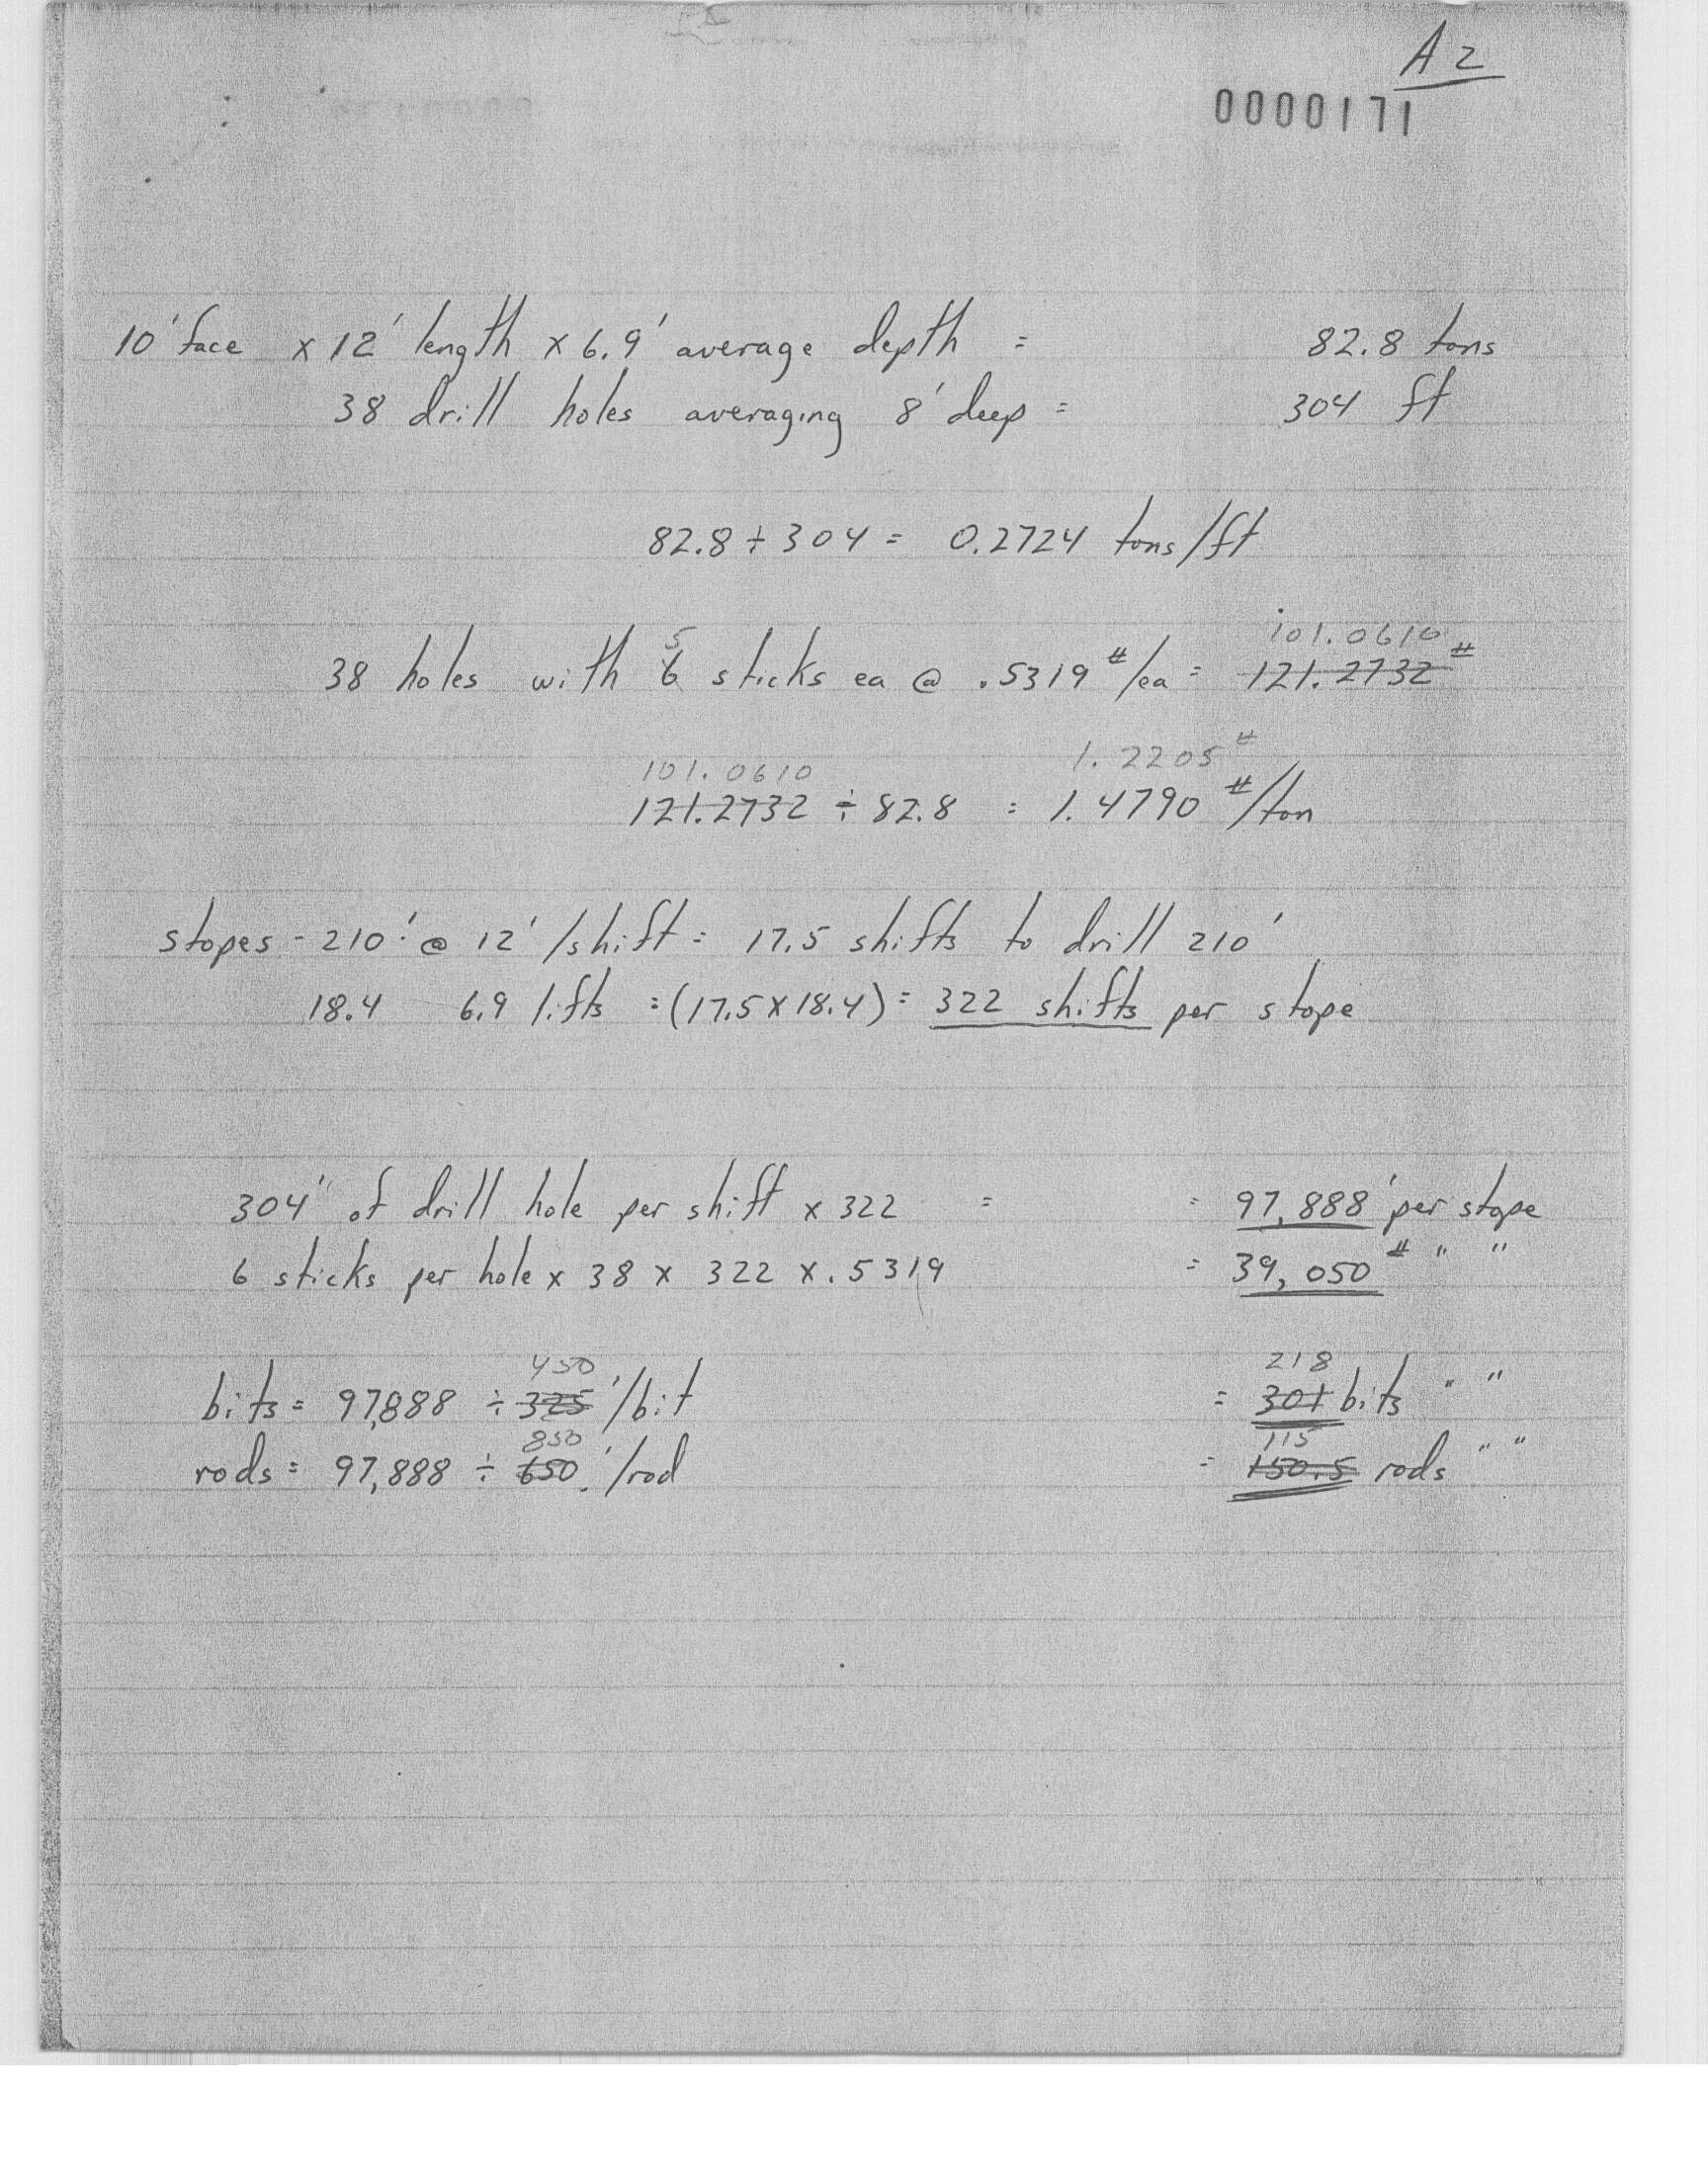 A2
0000171
10' face x 12' length x 6.9' average depth = 82.8 tons
38 drill holes averaging 8' deep = 304 ft
82.8 ÷ 304 = 0.2724 tons/ft
101.0610
5
38 holes with 6 sticks ea @ .5319 #/ea = 121.2732 #
101.0610 1.2205 #
121.2732 ÷ 82.8 = 1.4790 #/ton
stopes - 210' @ 12'/shift = 17.5 shifts to drill 210'
18.4 6.9 lifts = (17.5 x 18.4) = 322 shifts per stope
304' of drill hole per shift x 322 = = 97,888' per stope
6 sticks per hole x 38 x 322 x .5319 = 39,050 # " "
450 218
bits = 97,888 ÷ 325 '/bit = 301 bits " "
850 115
rods = 97,888 ÷ 650 '/rod = 150.5 rods " "